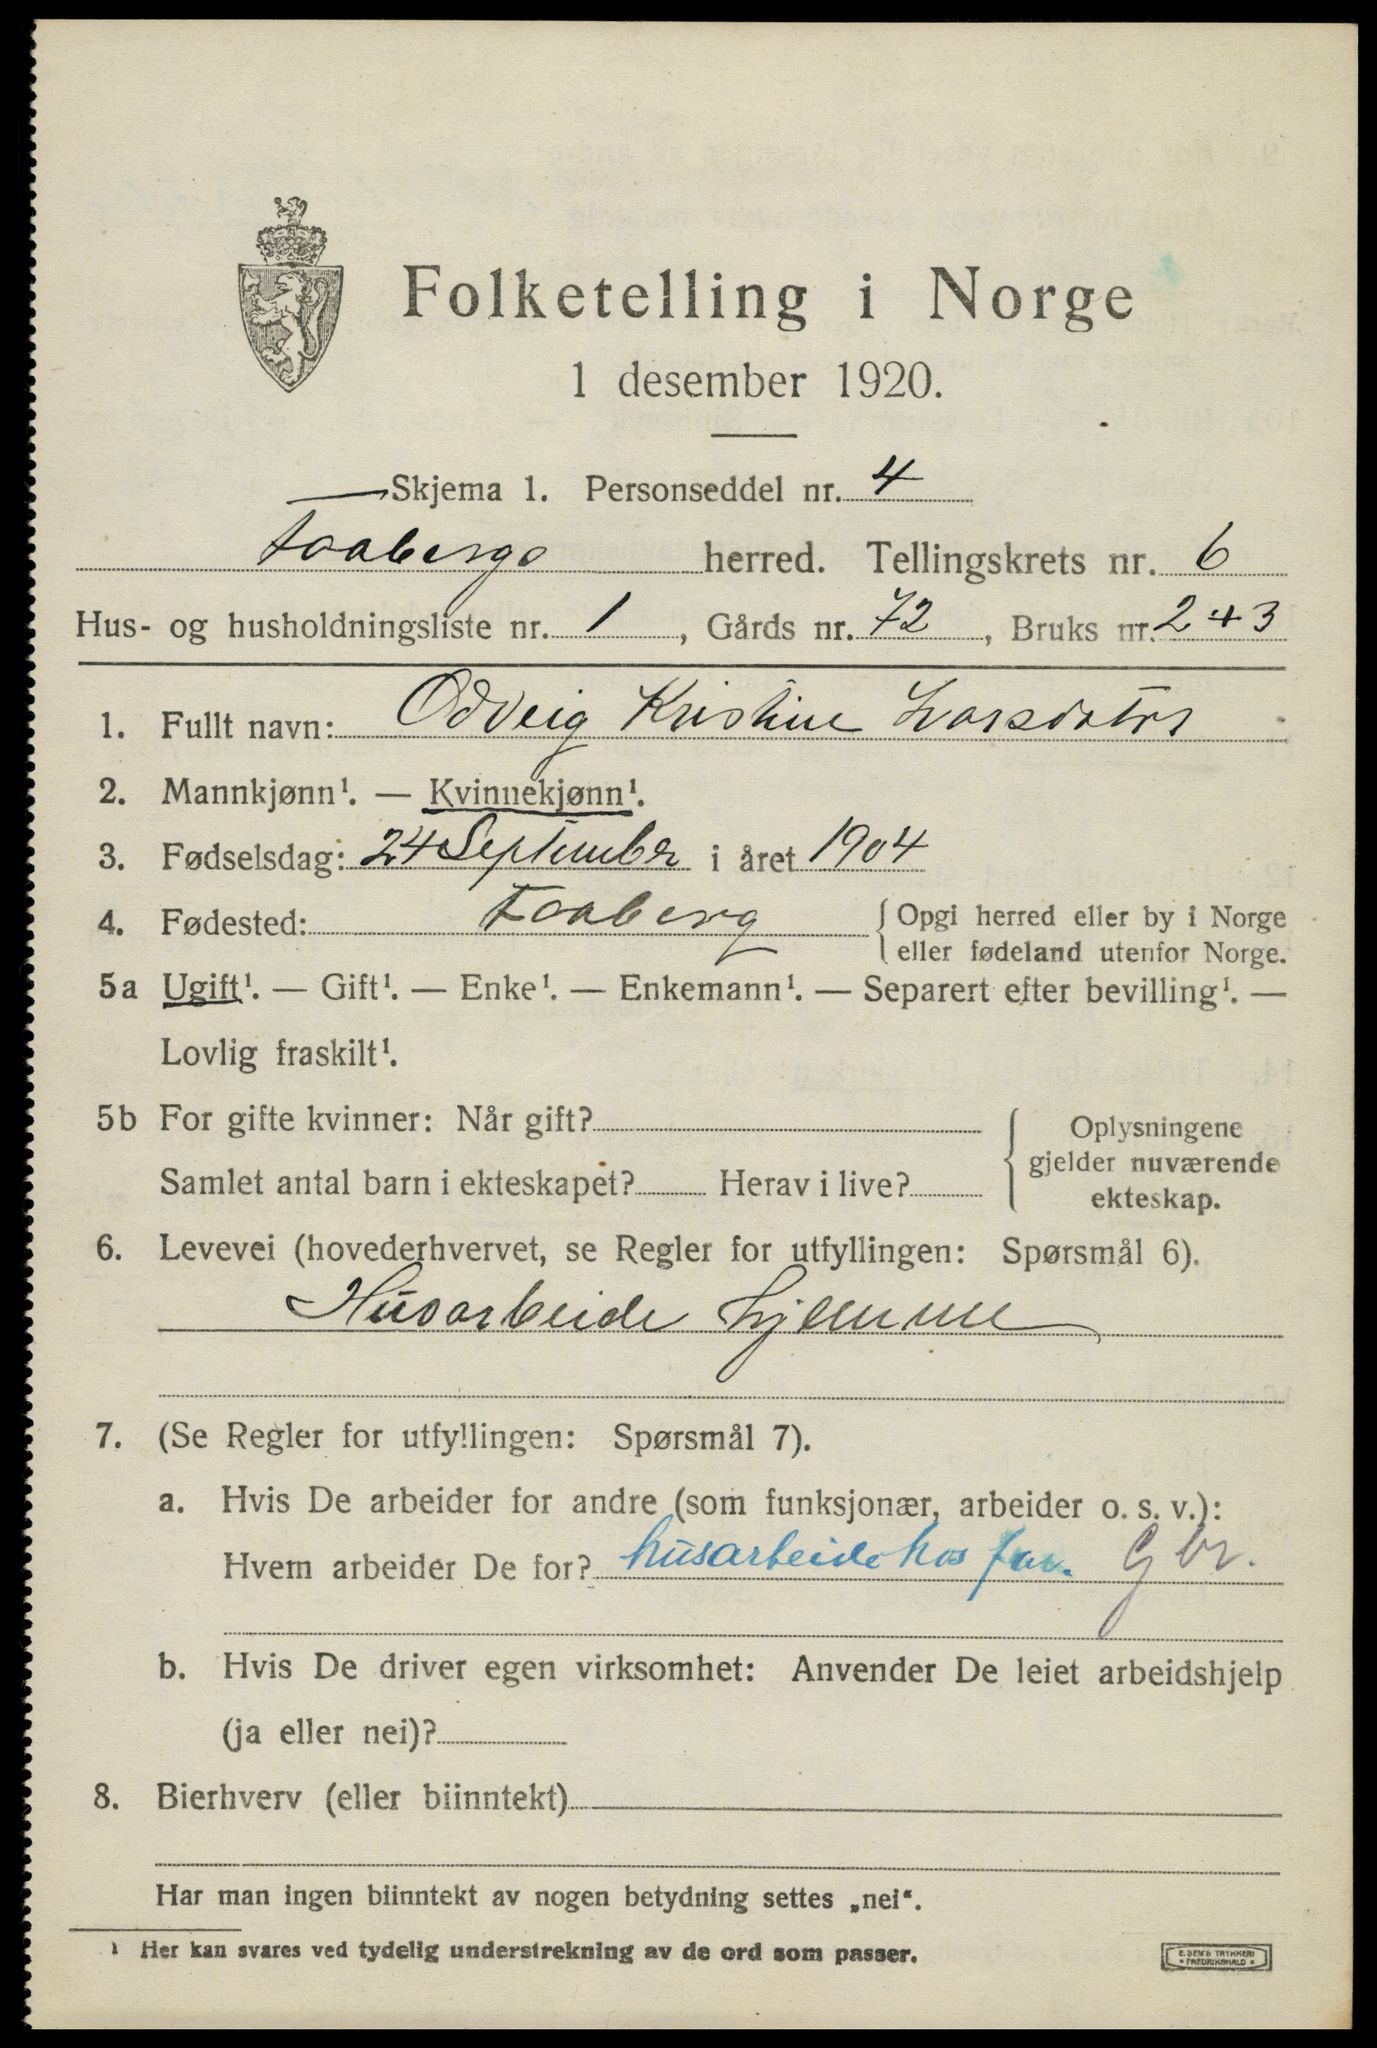 Folketelling i Norge
1 desember 1920.
Skjema 1. Personseddel nr. 4
Faabergs herred. Tellingskrets nr. 6
Hus- og husholdningsliste nr. 1, Gårds nr. 72, Bruks nr. 2+3
1. Fullt navn: Odveig Kristine Larsdatter
2. Mannkjønn¹. — Kvinnekjønn¹.
3. Fødselsdag: 24 September i året 1904
4. Fødested: Faaberg { Opgi herred eller by i Norge
eller fødeland utenfor Norge.
5a Ugift¹. — Gift¹. — Enke¹. — Enkemann¹. — Separert efter bevilling¹. —
Lovlig fraskilt¹.
5b For gifte kvinner: Når gift? { Oplysningene
gjelder nuværende
Samlet antal barn i ekteskapet? Herav i live?
ekteskap.
6. Levevei (hovederhvervet, se Regler for utfyllingen: Spørsmål 6).
Husarbeide hjemme
7. (Se Regler for utfyllingen: Spørsmål 7).
a. Hvis De arbeider for andre (som funksjonær, arbeider o. s. v.):
Hvem arbeider De for? husarbeide hos far. Gbr.
b. Hvis De driver egen virksomhet: Anvender De leiet arbeidshjelp
(ja eller nei)?
8. Bierhverv (eller biinntekt)
Har man ingen biinntekt av nogen betydning settes „nei“.
¹ Her kan svares ved tydelig understrekning av de ord som passer.
E. SEM'S TRYKKERI
• FREDRIKSHALD •